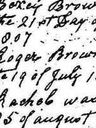 Boxey Brow
the 21st Day o
1807
Roger Brown
the 19 of July 1
Rachel was
25 of august